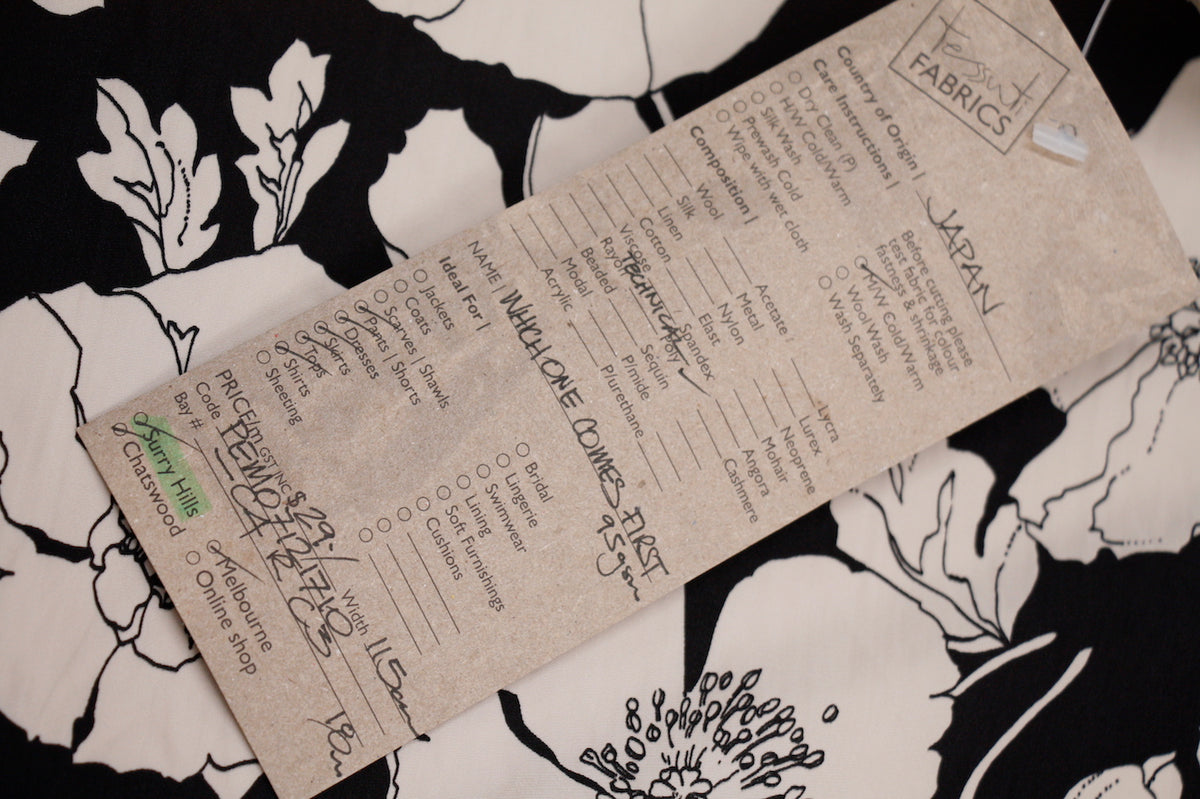 Tessuti
FABRICS
Country of Origin | JAPAN
Care Instructions |
Dry Clean (P)
H/W Cold/Warm
Silk Wash
Prewash Cold
Wipe with wet cloth
Before cutting please
test fabric for colour
fastness & shrinkage
M/W Cold/Warm
Wool Wash
Wash Separately
Composition |
Wool
Silk
Linen
Cotton
Viscose
Rayon
Beaded
Modal
Acrylic
Acetate
Metal
Nylon
Elast
Spandex
TECHNICAL Poly
Sequin
P/mide
P/urethane
Lycra
Lurex
Neoprene
Mohair
Angora
Cashmere
NAME | WHICH ONE COMES FIRST
95gsm
Ideal For |
Jackets
Coats
Scarves | Shawls
Pants | Shorts
Dresses
Skirts
Tops
Shirts
Sheeting
Bridal
Lingerie
Swimwear
Lining
Soft Furnishings
Cushions
PRICE/m GST INC $29./ Width 115cm
Code
Bay #
Surry Hills
Chatswood
Melbourne
Online shop